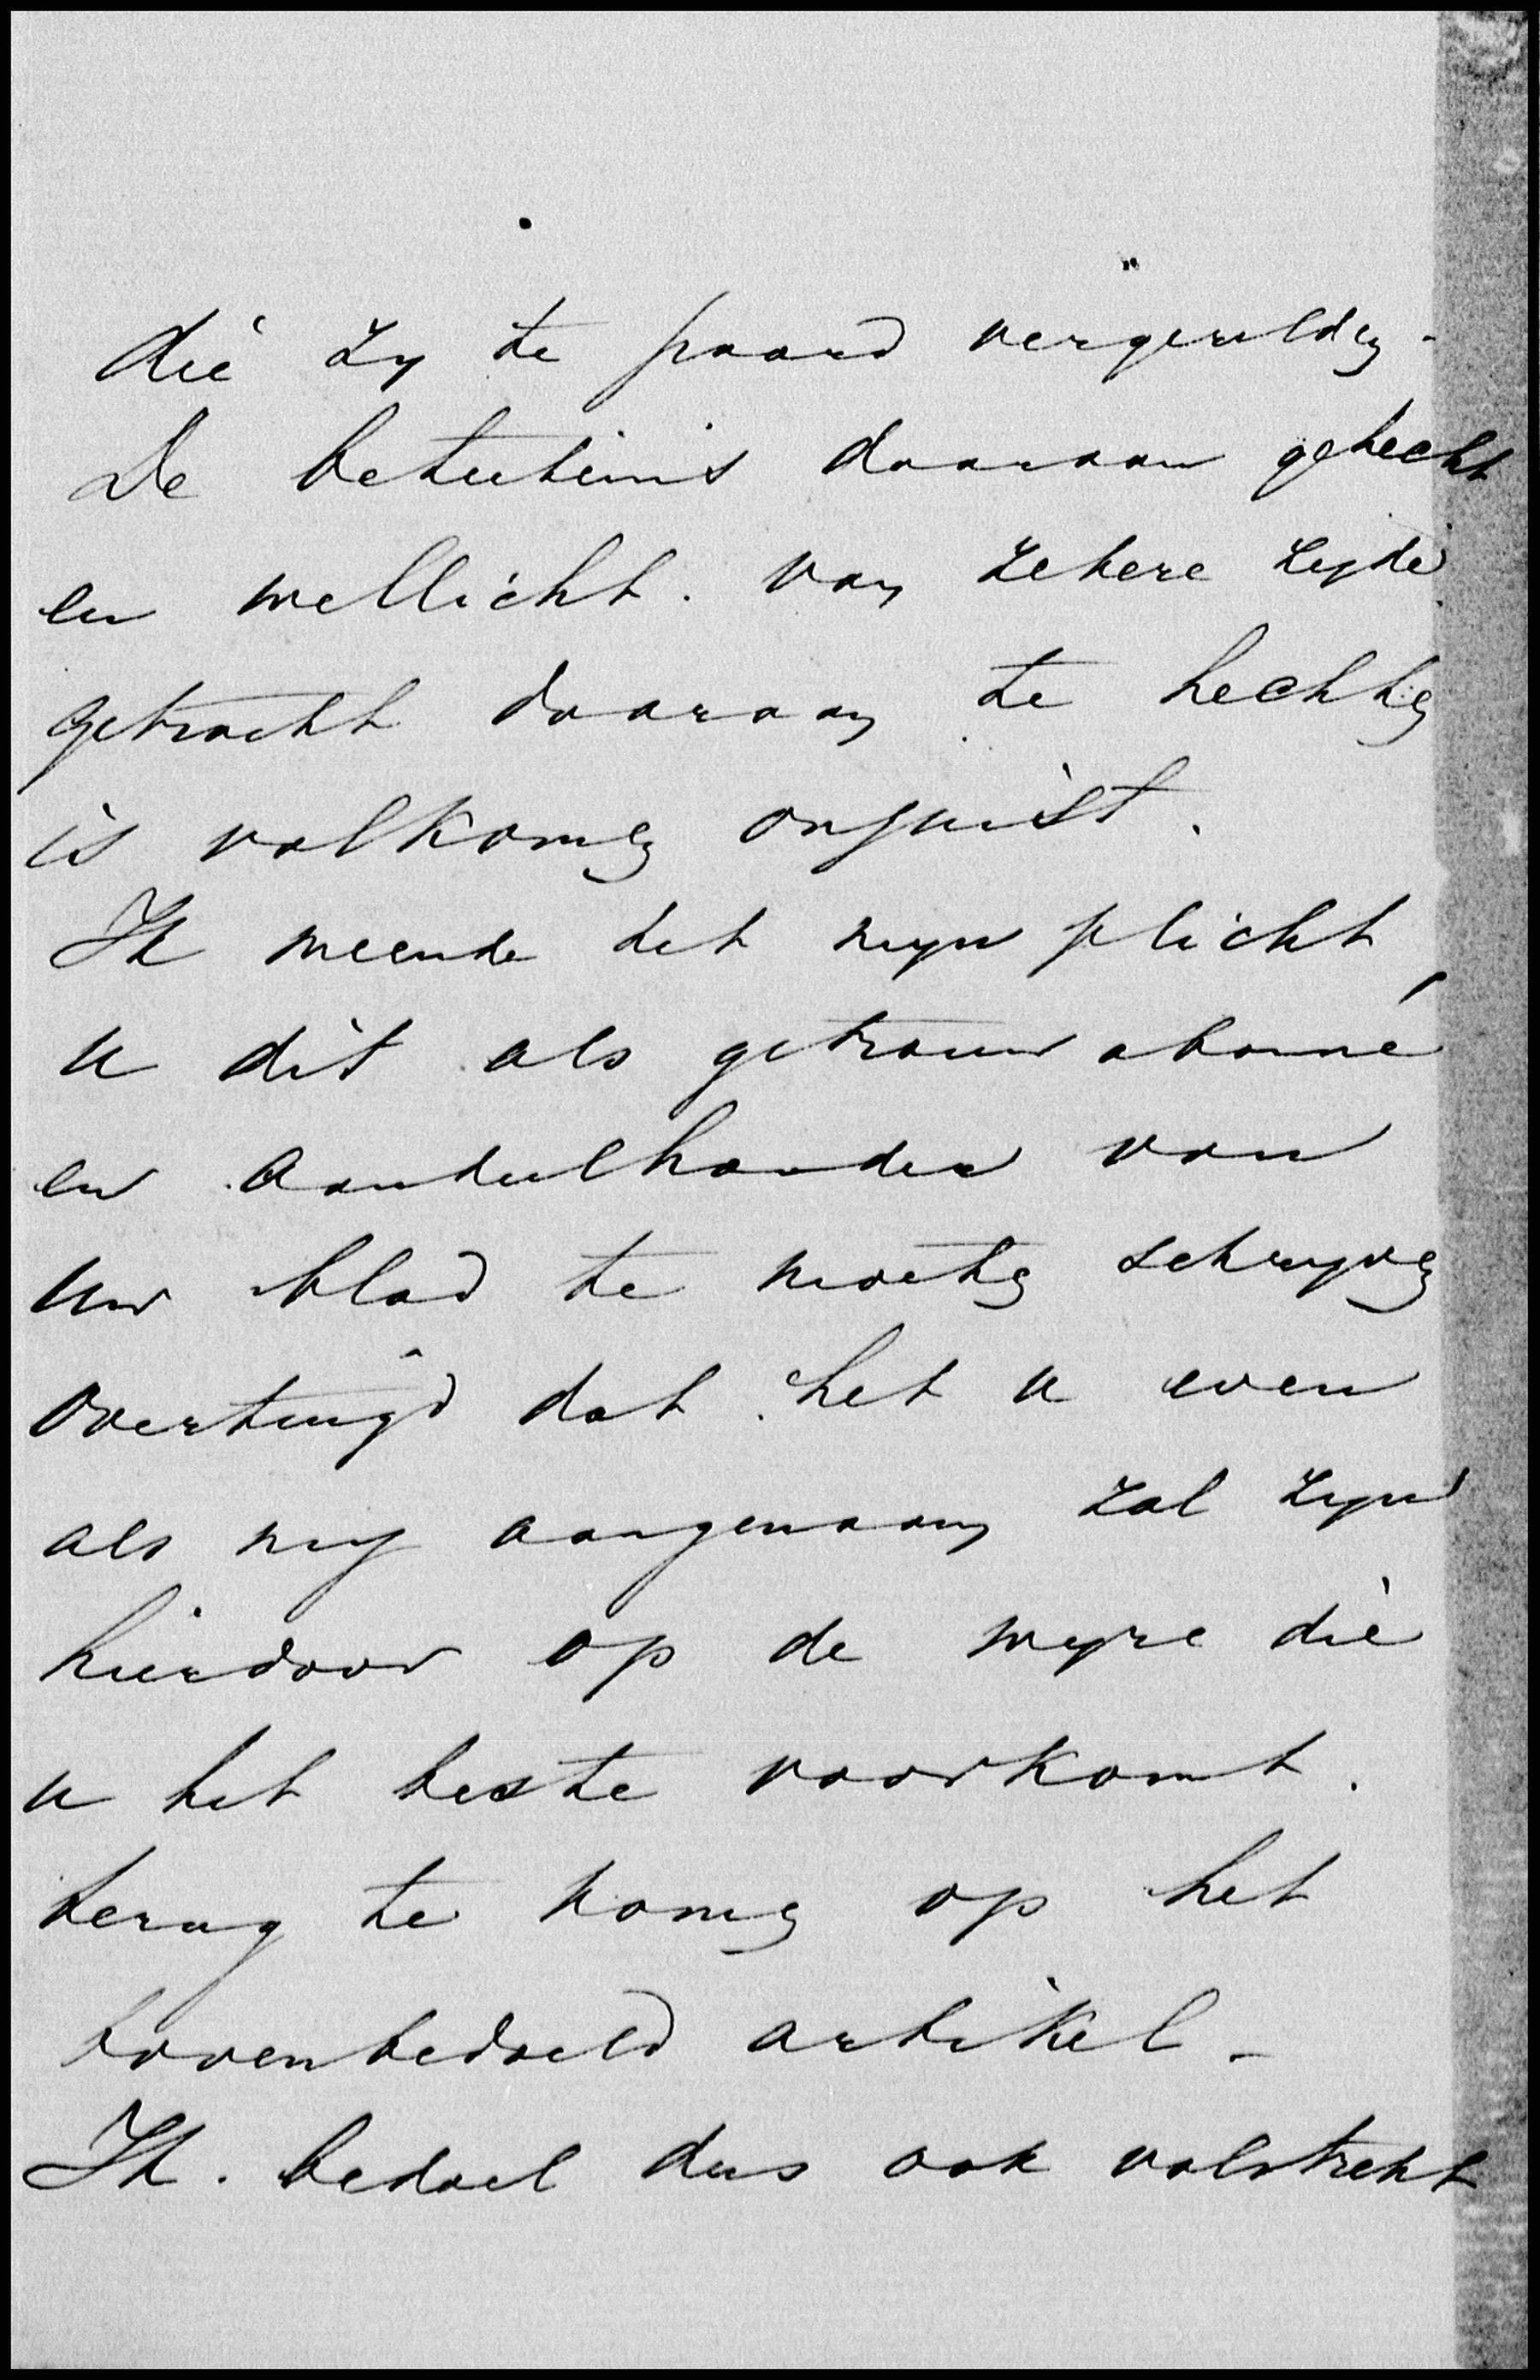 die zy te paard vergezelden.
De beteekenis daaraan gehecht
en wellicht. van zekere zyde
getracht daaraan te hechten
is volkomen onjuist.
Ik meende het myn plicht
u dit als getrouw abonné
en aandeelhouder van
uw blad te moeten schryven
overtuigd dat het u even
als my aangenaam zal zyn
hierdoor op de wyze die
u het beste voorkomt.
terug te komen op het
bovenbedoeld artikel -
Ik. bedoel dus ook volstrekt